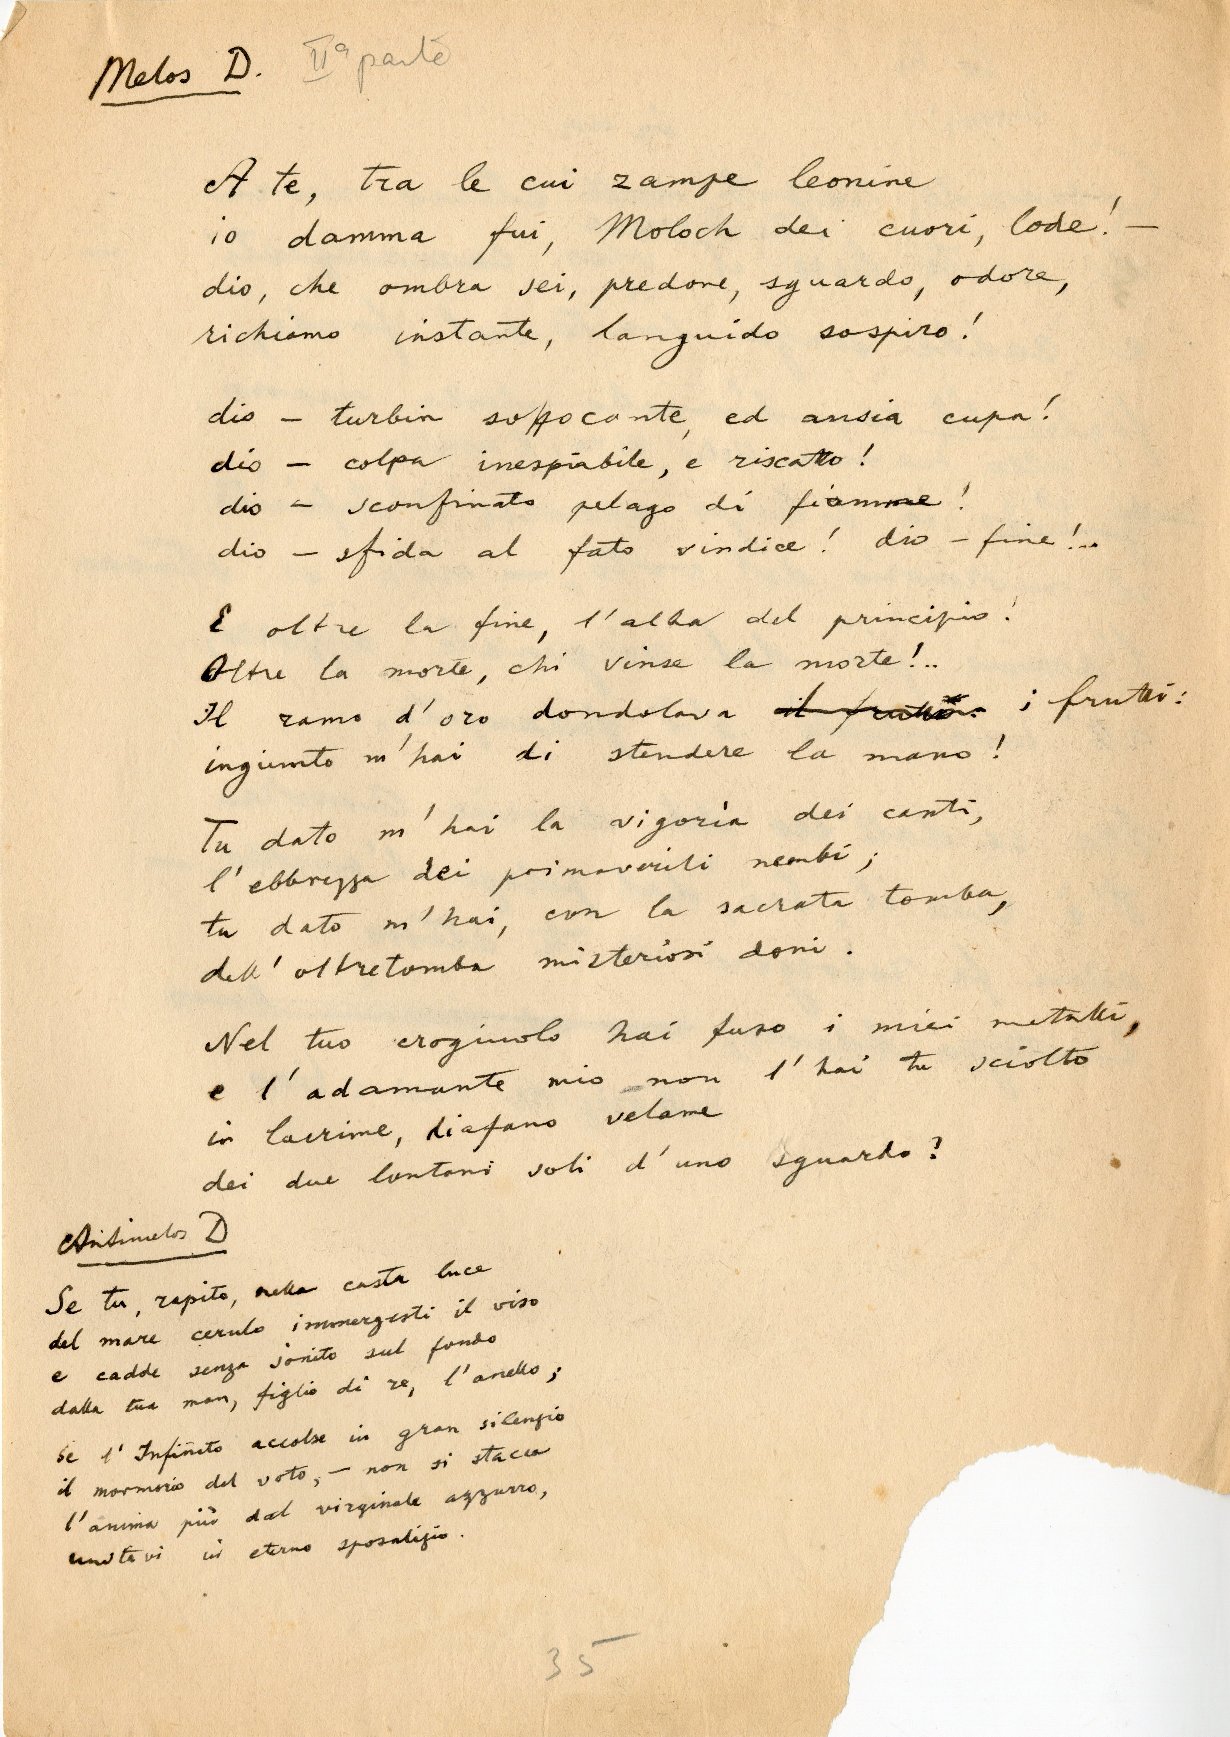 Melos D. IIª parte
A te, tra le cui zampe leonine
io damma fui, Moloch dei cuori, lode! —
dio, che ombra sei, predone, sguardo, odore,
richiamo instante, languido sospiro!
dio – turbin soffocante, ed ansia cupa!
dio – colpa inespiabile, e riscatto!
dio – sconfinato pelago di fiamme!
dio – sfida al fato vindice! dio – fine!..
E oltre la fine, l'alba del principio!
Oltre la morte, chi vinse la morte!..
Il ramo d'oro dondolava il frutto: i frutti:
ingiunto m'hai di stendere la mano!
Tu dato m'hai la vigoria dei canti,
l'ebbrezza dei primaverili nembi;
tu dato m'hai, con la sacrata tomba,
dell'oltretomba misteriosi doni.
Nel tuo crogiuolo hai fuso i miei metalli,
e l'adamante mio non l'hai tu sciolto
in lacrime, diafano velame
dei due lontani soli d'uno sguardo?
Antimelos D
Se tu, rapito, nella casta luce
del mare cerulo immergesti il viso
e cadde senza sonito sul fondo
dalla tua man, figlio di re, l'anello;
se l'Infinito accolse in gran silenzio
il mormorio del voto, – non si stacca
l'anima più dal virginale azzurro,
unitavi in eterno sposalizio.
35